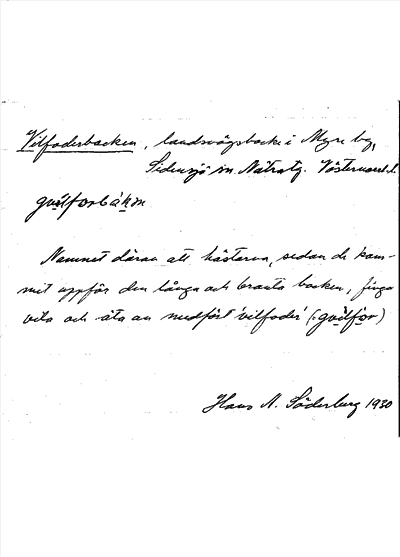 Vilfoderbacken, landsvägsbacke i Myre by,
Sidensjö sn. Nätratg. Västernorrl. l.
gvı̃lforbàkn
Namnet därav att hästarna, sedan de kom-
mit uppför den långa och branta backen, fingo
vila och äta av medfört 'vilfoder' (:gvı̃lfor)
Hans N. Söderberg 1930